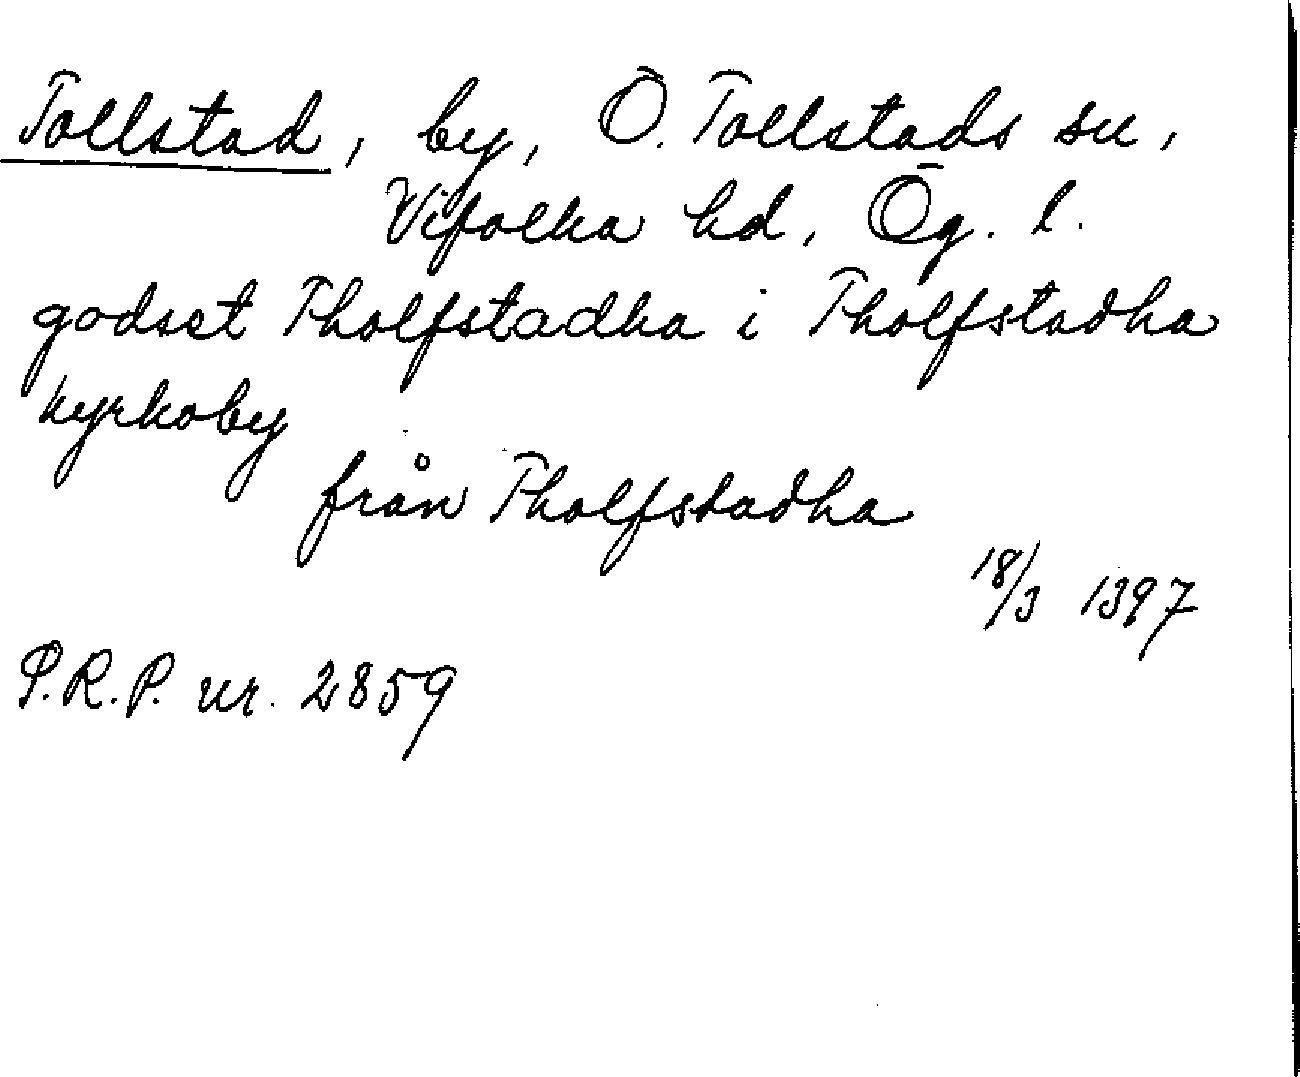 Tollstad, by, Ö. Tollstads sn,
Vifolka hd, Ög. l.
godset Tholfstadha i Tholfstadha
kyrkoby
från Tholfstadha
18/3 1397
P.R.P. nr. 2859